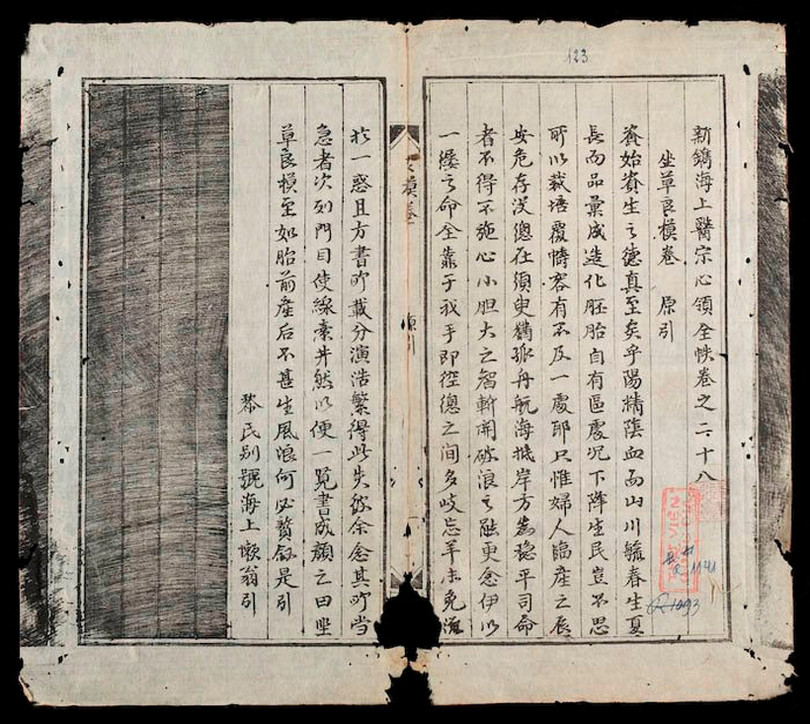 123
新鐫海上醫宗心領全帙卷之二十八
坐草良模卷 原引
資始資生之德真至矣乎陽精陰血而山川毓春生夏
長而品彙成造化胚胎自有區處况下降生民豈不思
所以栽培覆幬容有不及一處耶只惟婦人臨產之辰
安危存没總在須臾猶孤舟航海抵岸方為穩平司命
者不得不施心小胆大之智斬開破浪之能更念伊以
一縷之命全靠于我手即徑總之间多岐忘羊未免滋
於一惑且方書所載分演浩繁得此失彼余念其所当
急者次列門目使線索井然以便一覧書成顏之曰坐
草良模至如胎前產后不甚生風浪何必贅叙是引
黎氏别號海上懶翁引
原引